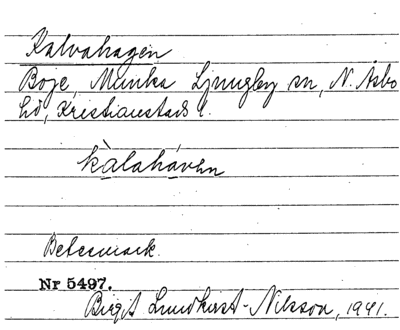 Kalvahagen
Boje, Munka Ljungby sn, N. Åsbo
hd, Kristianstads l.
kàlahávən
Betesmark.
Nr 5497.
Birgit Lundkvist-Nilsson, 1941.